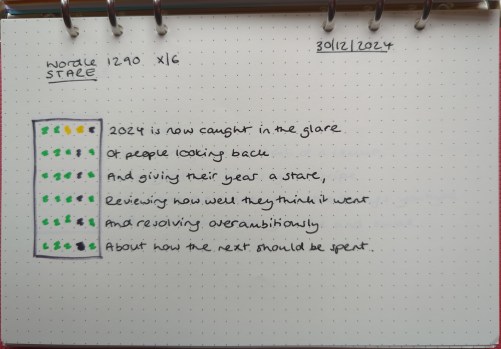 30/12/2024
Wordle 1290 X/6
STARE
2024 is now caught in the glare
Of people looking back
And giving their year a stare,
Reviewing how well they think it went
And resolving overambitiously
About how the next should be spent.